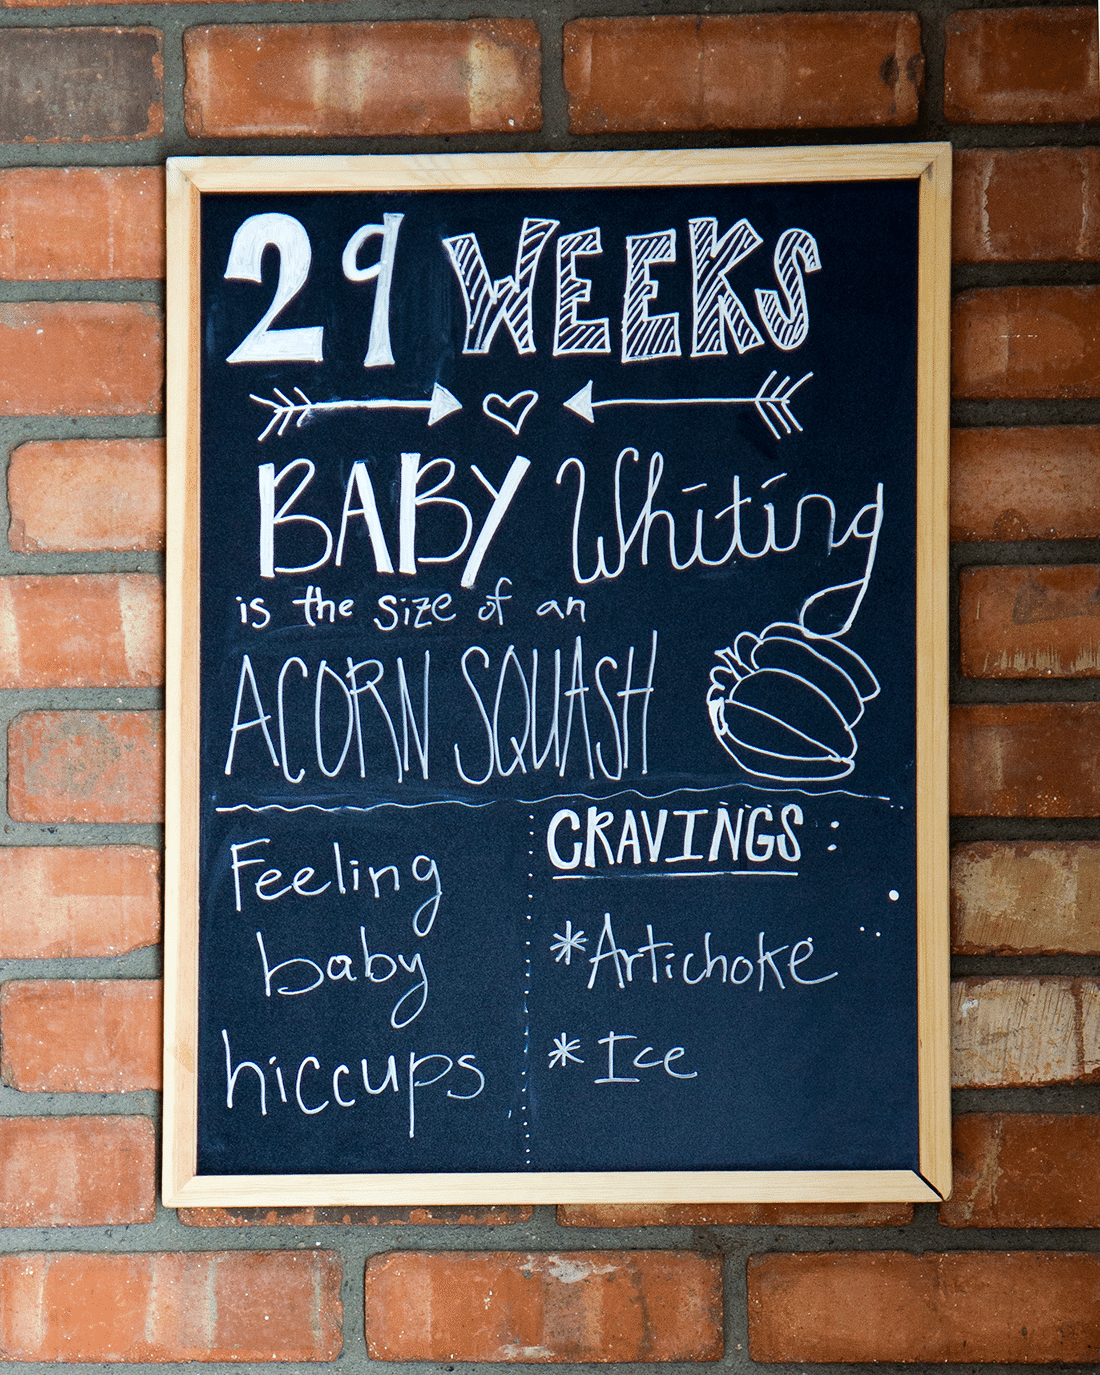 29 WEEKS
BABY Whiting
is the size of an
ACORN SQUASH
Feeling
baby
hiccups
CRAVINGS:
*Artichoke
*Ice